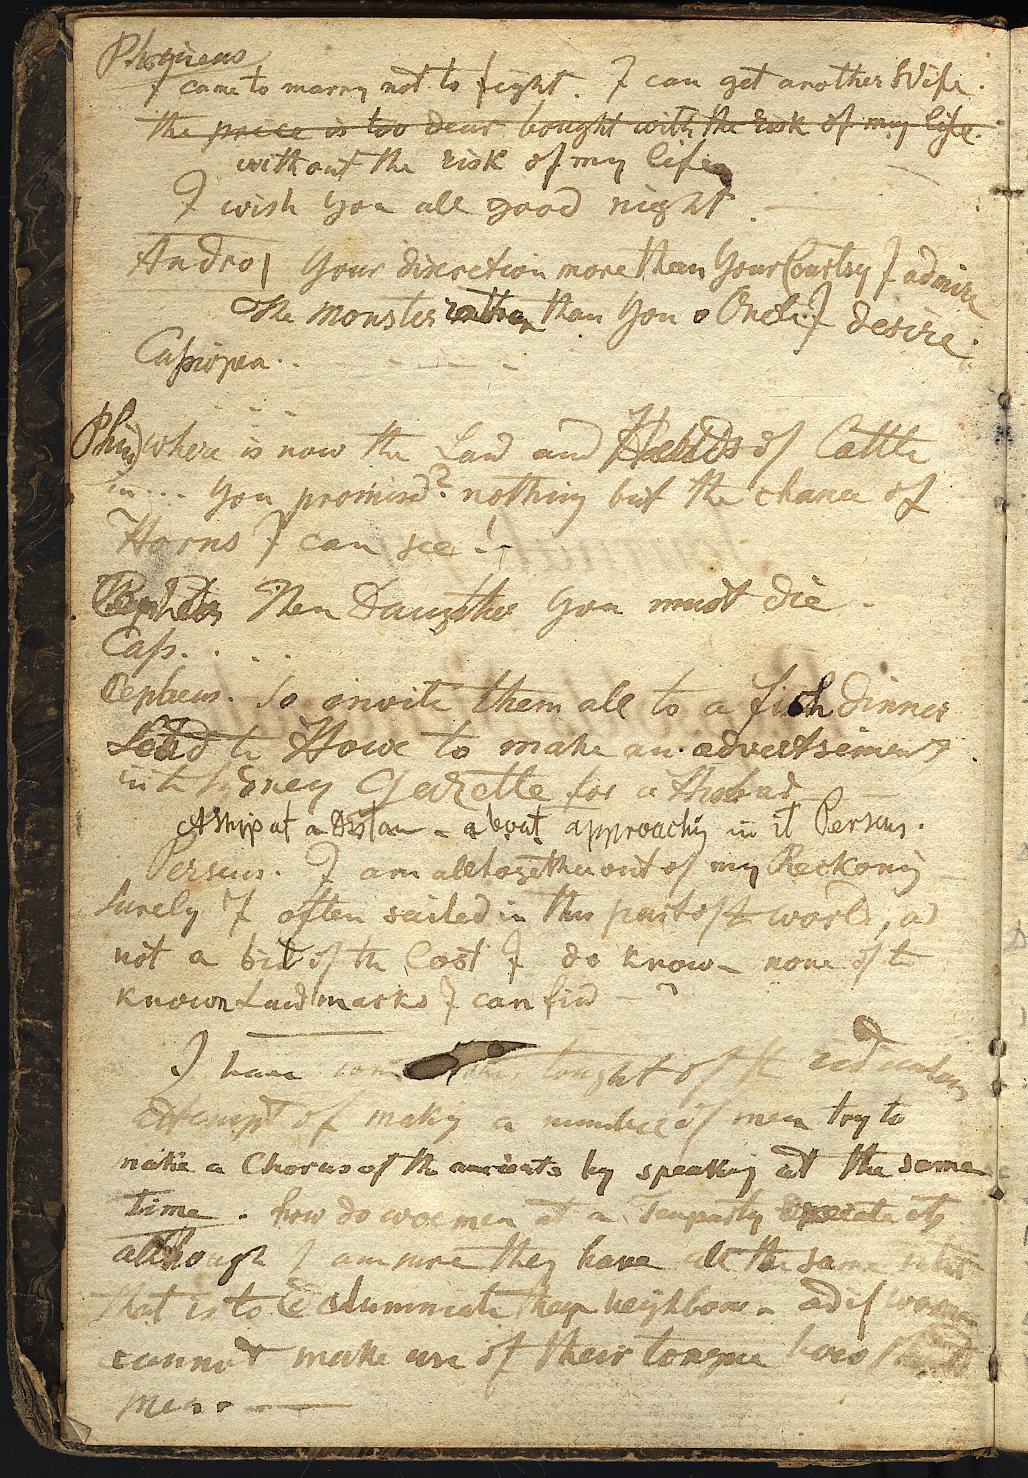 Phineus
I came to marry not to fight. I can get another Wife.
the price is too dear bought with the risk of my life.
without the risk of my life
I wish you all good night
Andro| Your discretion more than Your Courtsy I admire
The monster rather than you o Onct I desire
Cassiopea.
Phin where is now the Land and Herds of Cattle
in ... you promisd? nothing but the chance of
Horns I can see !
Cepheus Then Daughter you must die
Cass. . . .
Cepheus. So invite them all to a fish dinner
Send to Howe to make an advertsiment
in the Sydney Gazette for a Husband
A ship at a Distan - about approachig in it Perseus.
Perseus. I am alltogether out of my Reckonig
Surely I often sailed in this part of t world, ad
not a bit of the Cost I do know none of t
known Land marks I can find - ?
I have tought of the
attempt of makig a number of men try to
make a Chorus of the ancients by speakig at the same
time. how do woemen at a Teaparty
although I am sure they have all the same
that is to Calumniate they neighbours - ad if women
cannot make use of their tongue how
men. -